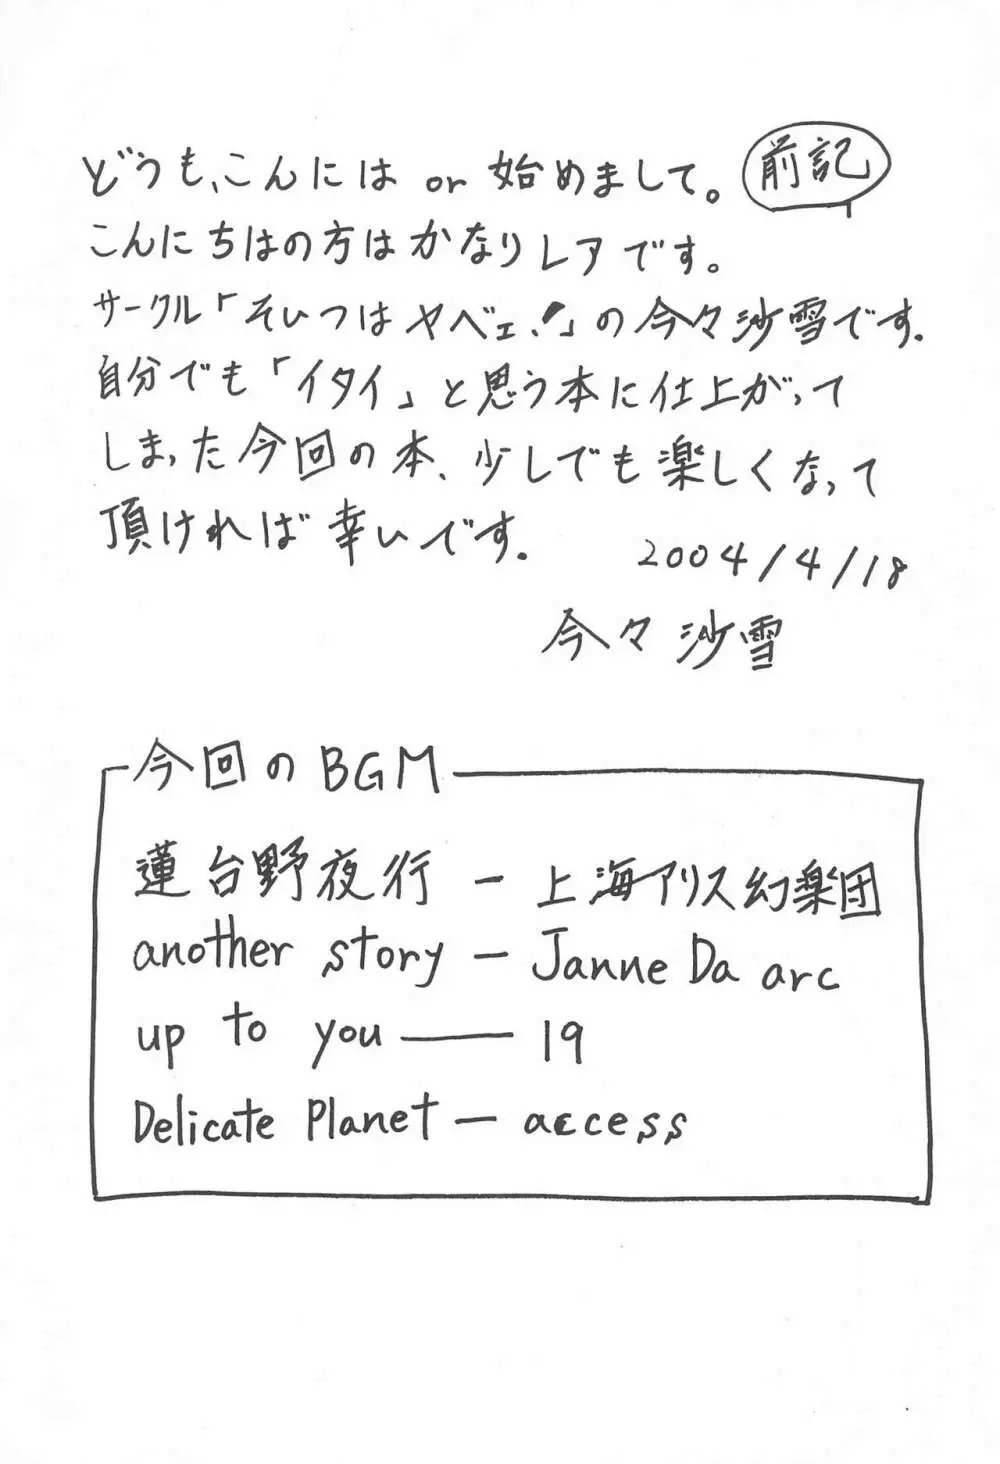 前記
どうも、こんには or 始めまして。
こんにちはの方はかなりレアです。
サークル「そいつはヤベェ!」の今々沙雪です。
自分でも「イタイ」と思う本に仕上がって
しまった今回の本、少しでも楽しくなって
頂ければ幸いです。
2004/4/18
今々沙雪
今回のBGM
蓮台野夜行 - 上海アリス幻楽団
another story - Janne Da arc
up to you — 19
Delicate Planet - access